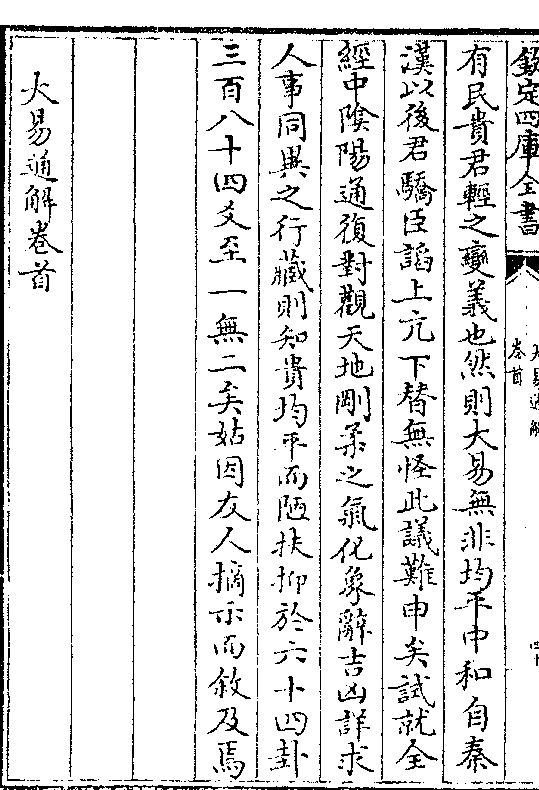 欽定四庫全書
大易通解
卷首
四十
有民貴君輕之變義也然則大易無非均平中和自秦
漢以後君驕臣諂上亢下替無怪此議難申矣試就全
經中陰陽通復對觀天地剛柔之氣化象辭吉凶詳求
人事同異之行藏則知貴均平而陋扶抑於六十四卦
三百八十四爻至一無二矣姑因友人摘示而敘及焉
大易通解卷首